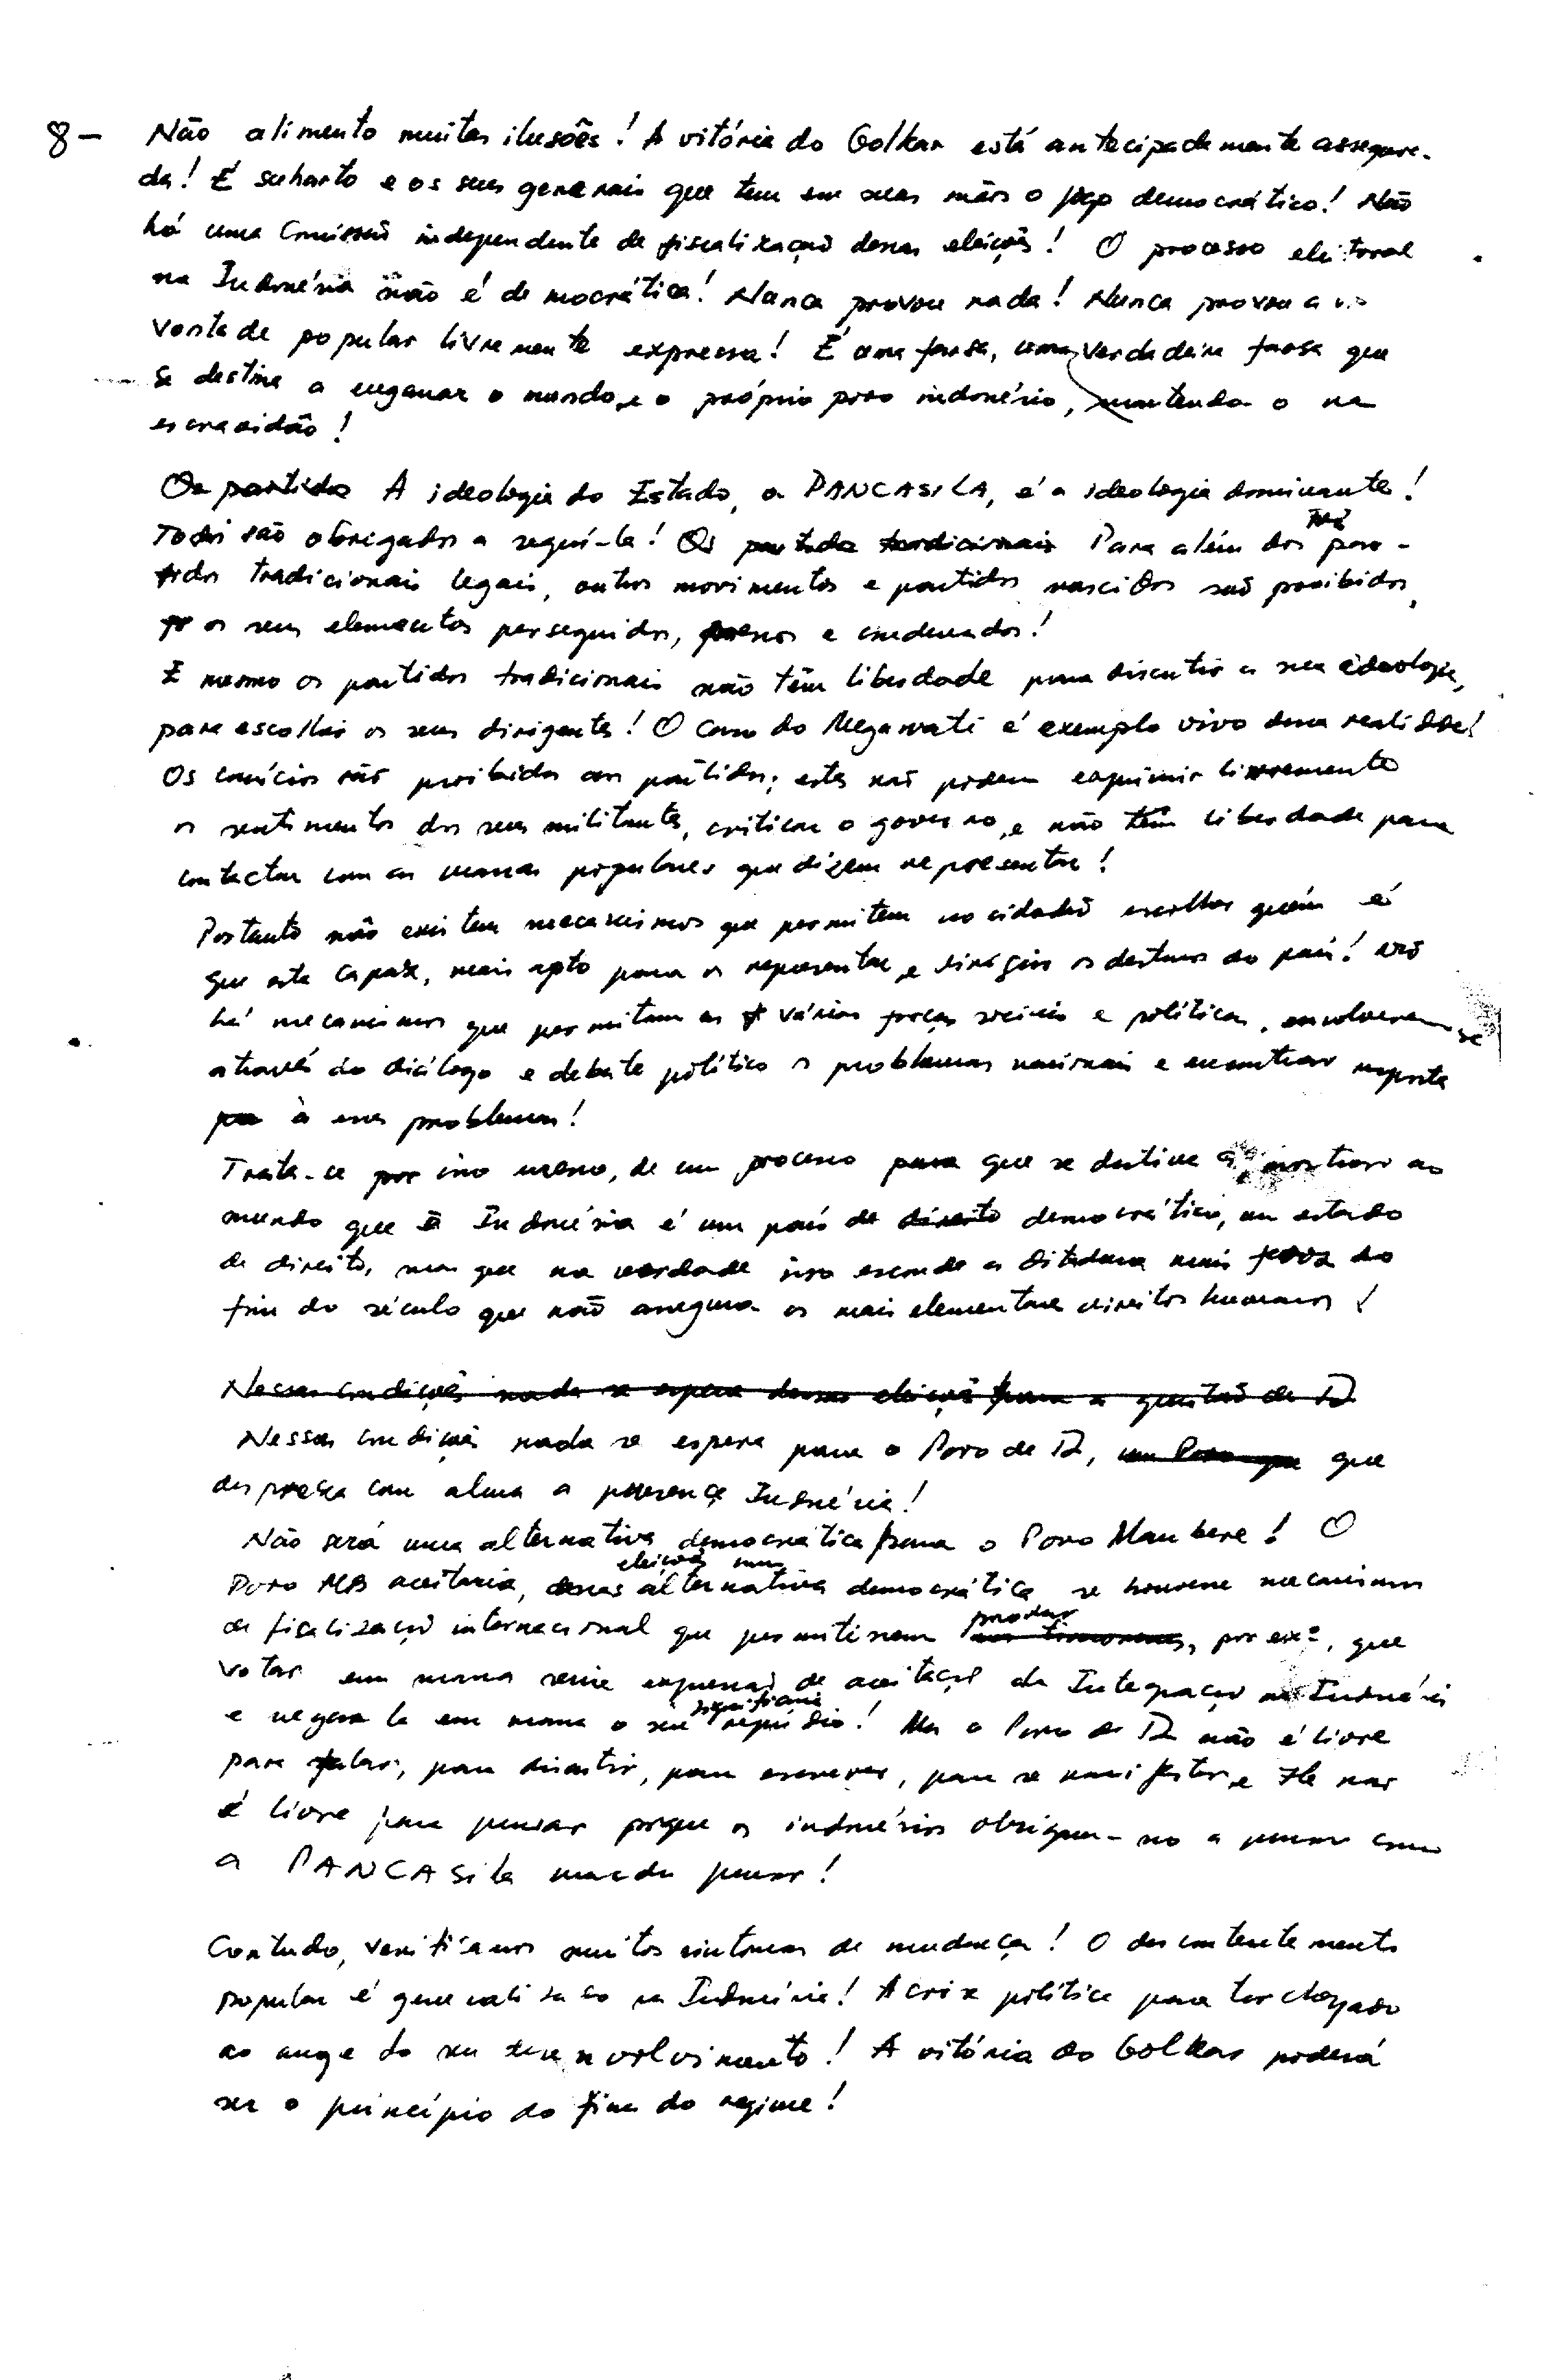 8 - Não alimento muitas ilusões! A vitória do Golkar está antecipadamente assegura-
da! É Suharto e os seus generais que tem em suas mãos o jogo democrático! Não
há uma Comissão independente de fiscalização dessas eleições! O processo eleitoral
na Indonésia não é democrática! Nunca provou nada! Nunca provou a
vontade popular livremente expressa! É uma farsa, uma verdadeira farsa que
se destina a enganar o mundo, e o próprio povo indonésio, mantendo o na
escravidão!
Os partidos A ideologia do Estado, a PANCASILA, é a ideologia dominante!
Todos são obrigados a seguí-la! Os partidos tradicionais Para além dos três par-
tidos tradicionais legais, outros movimentos e partidos nascidos são proibidos,
os seus elementos perseguidos, presos e condenados!
E mesmo os partidos tradicionais não têm liberdade para discutir a sua ideologia,
para escolher os seus dirigentes! O caso do Megawati é exemplo vivo dessa realidade!
Os comícios são proibidos aos partidos; estes não podem exprimir livremente
os sentimentos dos seus militantes, criticar o governo, e não têm liberdade para
contactar com as massas populares que dizem representar!
Portanto não existem mecanismos que permitem ao cidadão escolher quem é
que está capaz, mais apto para os representar, e dirigir os destinos do país! Não
há mecanismos que permitam as várias forças sociais e políticas, envolverem-se
através do diálogo e debate político os problemas nacionais e encontrar resposta
à esses problemas!
Trata-se por isso mesmo, de um processo para que se destina a mostrar ao
mundo que a Indonésia é um país de direito democrático, um estado
de direito, mas que na verdade isso esconde a ditadura mais feroz do
fim do século que não assegura os mais elementares direitos humanos!
Nessas condições nada se espera dessas eleições para a questão de TL
Nessas condições nada se espera para o Povo de TL, um Povo que que
despreza com alma a presença Indonésia!
Não será uma alternativa democrática para o Povo Maubere! O
eleições numa
Povo MB aceitaria, dessas alternativa democrática se houvesse mecanismos
provar
de fiscalização internacional que permitissem aos timorenses, por exº, que
votar em massa seria expressão de aceitação da Integração na Indonésia
significaria
e negá-la em massa o seu repúdio! Mas o Povo de TL não é livre
para falar, para discutir, para escrever, para se manifestar, e Ele não
é livre para pensar porque os indonésios obrigam-no a pensar como
a PANCASila manda pensar!
Contudo, verificamos muitos sintomas de mudança! O descontentamento
popular é generalizado na Indonésia! A crise política para ter chegado
ao auge do seu desenvolvimento! A vitória do Golkar poderá
ser o princípio do fim do regime!